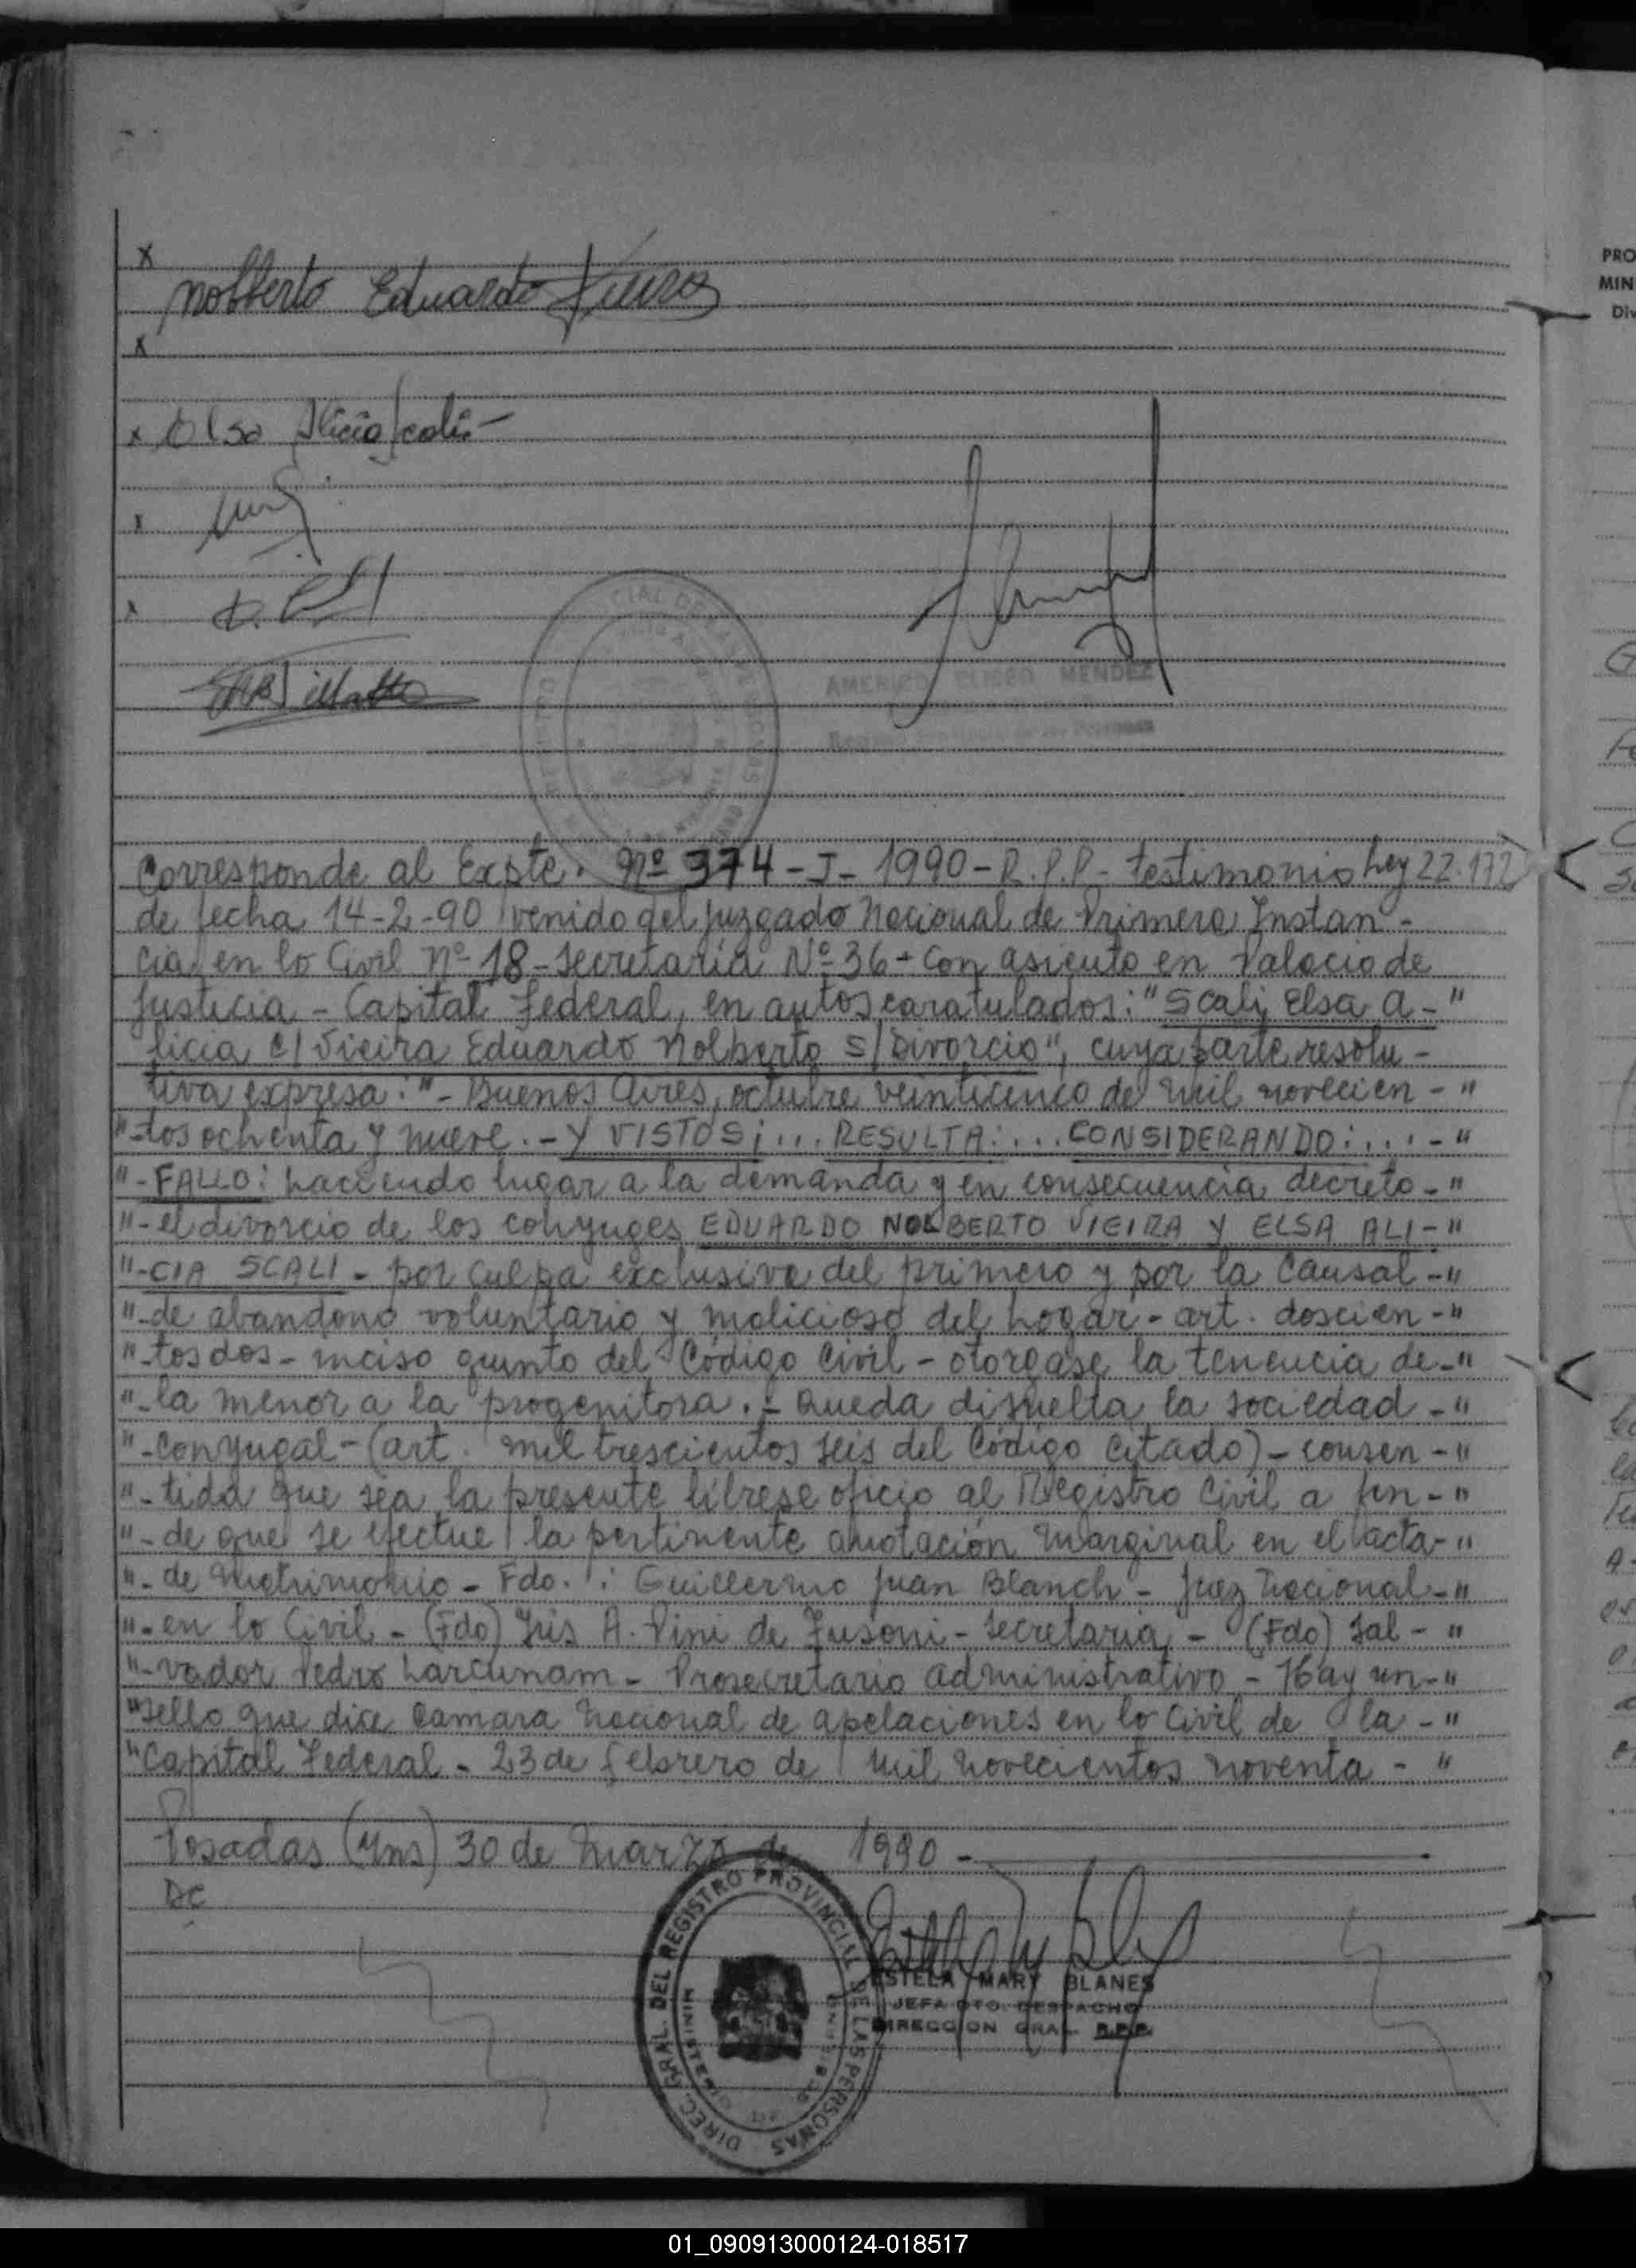 x
Nolberto Eduardo Vieira
x
x Elsa Alicia Scali -
x
x
CIAL DE LAS PERSONAS
AMERICO ELISEO MENDEZ
Corresponde al Expte. Nº 374 - J - 1990 - R.P.P - testimonio Ley 22.172
de fecha 14-2-90 venido del Juzgado Nacional de Primera Instan -
cia en lo Civil Nº 18 - Secretaria Nº 36 - con asiento en Palacio de
Justicia - Capital Federal, en autos caratulados: "Scali, Elsa A - "
licia c/ Vieira Eduardo Nolberto s/ Divorcio", cuya parte resolu -
tiva expresa: " - Buenos Aires, octubre veinticinco de mil novecien - "
" - tos ochenta y nueve. - Y VISTOS; ... RESULTA: ... CONSIDERANDO: ... - "
" - FALLO: haciendo lugar a la demanda y en consecuencia decreto - "
" - el divorcio de los conyuges EDUARDO NOLBERTO VIEIRA Y ELSA ALI - "
" - CIA SCALI - por culpa exclusiva del primero y por la causal - "
" - de abandono voluntario y malicioso del hogar - art. doscien - "
" - tos dos - inciso quinto del Código Civil - otorgase la tenencia de - "
" - la menor a la progenitora. - Queda disuelta la sociedad - "
" - conyugal - (art. mil trescientos seis del Código citado) - consen - "
" - tida que sea la presente librese oficio al Registro Civil a fin - "
" - de que se efectue la pertinente anotación marginal en el acta - "
" - de Matrimonio - Fdo. : Guillermo Juan Blanch - Juez Nacional - "
" - en lo Civil - (Fdo) A. Pini de Fusoni - Secretaria - (Fdo) Sal - "
" - vador Pedro - Prosecretario administrativo - Hay un - "
" Sello que dice Camara Nacional de apelaciones en lo Civil de la - "
" Capital Federal - 23 de febrero de mil novecientos noventa - "
Posadas (Mns) 30 de Marzo de 1990 -
DC
DIREC. GRAL. DEL REGISTRO PROVINCIAL DE LAS PERSONAS
ESTELA MARY BLANES
JEFA DTO. DESPACHO
DIRECCION GRAL. R.P.P.
PRO
MIN
Div
01_090913000124-018517